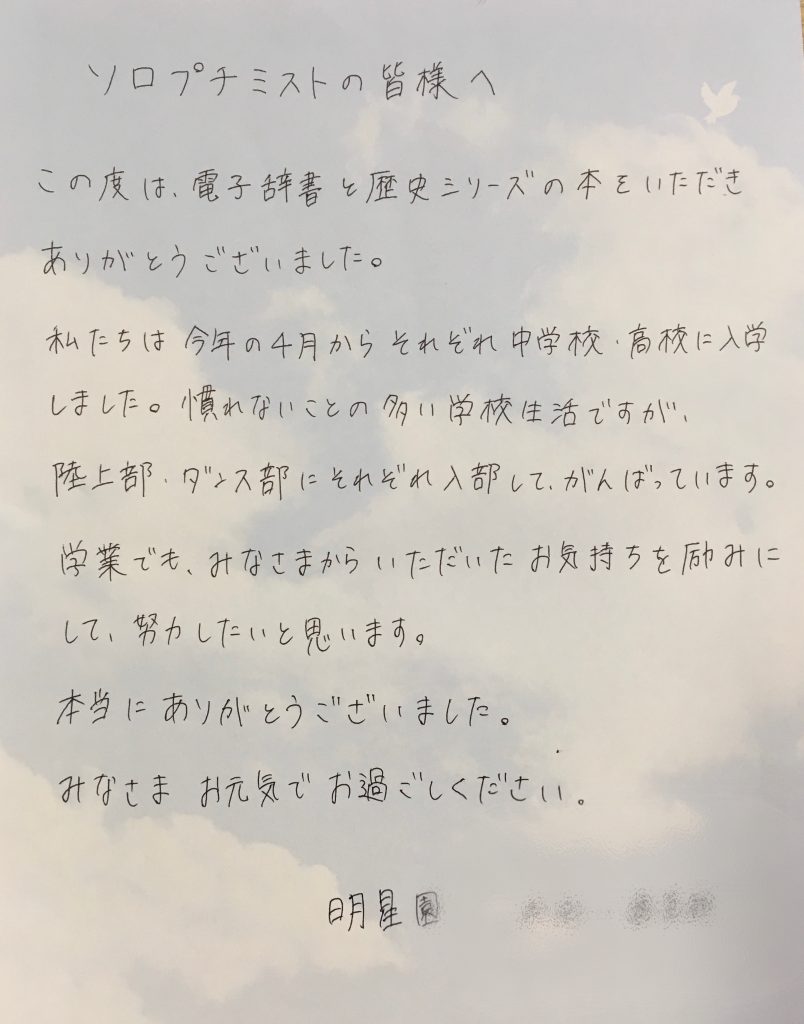 ソロプチミストの皆様へ
この度は、電子辞書と歴史シリーズの本をいただき
ありがとうございました。
私たちは今年の4月からそれぞれ中学校・高校に入学
しました。慣れないことの多い学校生活ですが、
陸上部・ダンス部にそれぞれ入部して、がんばっています。
学業でも、みなさまからいただいたお気持ちを励みに
して、努力したいと思います。
本当にありがとうございました。
みなさまお元気でお過ごしください。
明星園